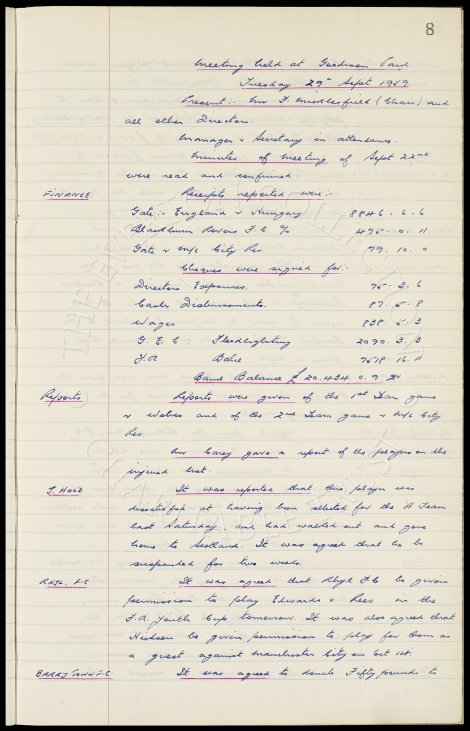 8
Meeting held at Goodison Park
Tuesday 29th Sept 1959
Present:- Mr F. Micklesfield (Chair) and
all other Directors.
Manager & Secretary in attendance.
Minutes of meeting of Sept 22nd
were read and confirmed
FINANCE Receipts reported were:-
Gate:- England v Hungary 8846 . 6 . 6
Blackburn Rovers F.C % 475 . 0 . 11
Gate v M/c City Res 79 . 10 . 0
Cheques were signed for:-
Directors Expenses. 75 . 2 . 6
Cash Disbursements. 87 . 5 . 8
Wages 838 . 5 . 3
G. E. C. Floodlighting 2090 . 3 . 3
F.A 7518 . 16 . 11
Bank Balance £ 20,434 . 0 . 9
Reports Reports were given of the 1st Team game
v Wolves and of the 2nd Team game v M/c City
Res.
Mr Carey gave a report of the players on the
injured list.
J. HOOD It was reported that this player was
dissatisfied at having been selected for the 'A' Team
last Saturday, and had walked out and gone
home to Scotland. It was agreed that he be
suspended for two weeks.
RHYL. F.C It was agreed that Rhyl F.C be given
permission to play Edwards & Rees in the
F.A Youth Cup tomorrow. It was also agreed that
be given permission to play for them as
a guest against Manchester City on Oct 14.
BARRY TOWN F.C It was agreed to donate Fifty pounds to